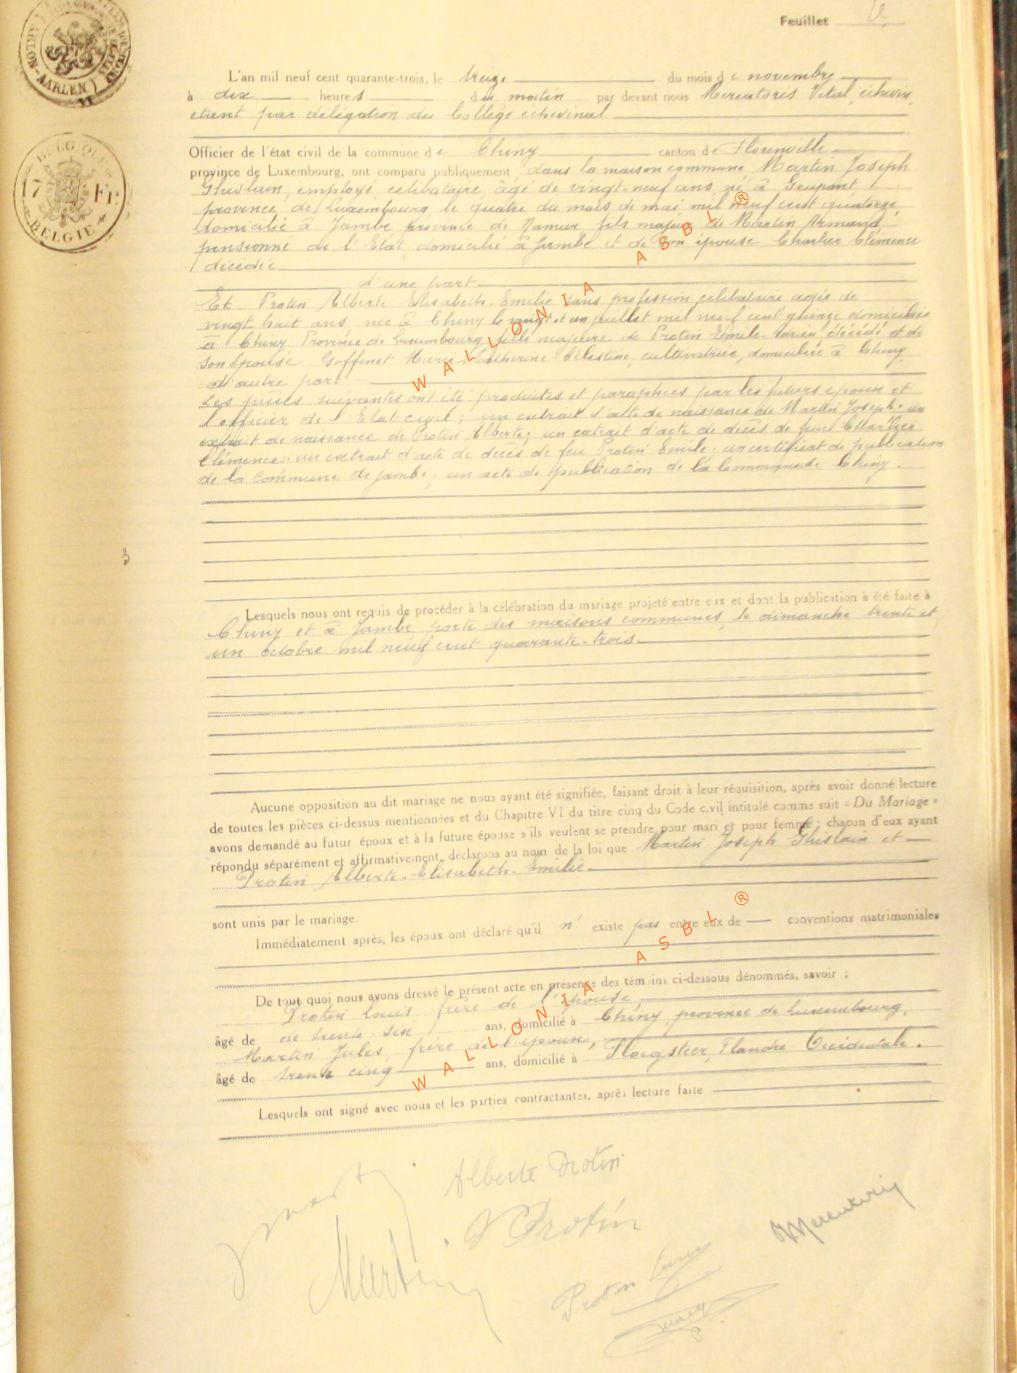 Feuillet
ARLON - AARLEN
BELGIQUE
17 Fr
BELGIE
L'an mil neuf cent quarante-trois, le treize du mois de novembre
à dix heures du matin par devant nous Mercatoris Vital, échevin,
étant par délégation du Collège échevinal
Officier de l'état civil de la commune de Chiny canton de Florenville
province de Luxembourg, ont comparu publiquement, dans la maison commune Martin Joseph
Ghislain, employé célibataire âgé de vingt-neuf ans, né à Grupont
province de Luxembourg le quatre du mois de mai mil neuf cent quatorze,
domicilié à Jambe province de Namur fils majeur de Martin Armand
pensionné de l'Etat, domicilié à Jambe et de son épouse Charlier Clémence
décédée
d'une part
Et Protin Alberte Elisabeth Emilie sans profession célibataire agée de
vingt huit ans née à Chiny le vingt et un juillet mil neuf cent quinze domiciliée
à Chiny Province de Luxembourg fille majeure de Protin Emile Adrien décédé et de
son épouse Goffinet Marie Catherine Célestine, cultivatrice, domiciliée à Chiny,
d'autre part
Les pièces suivantes ont été produites et paraphées par les futurs époux et
l'officier de l'Etat civil; un extrait d'acte de naissance de Martin Joseph, un
extrait de naissance de Protin Alberte; un extrait d'acte de décès de feue Charlier
Clémence; un extrait d'acte de décès de feu Protin Emile; un certificat de publication
de la commune de Jambe; un acte de publication de la Commune de Chiny.
3
Lesquels nous ont requis de procéder à la célébration du mariage projeté entre eux et dont la publication a été faite à
Chiny et à Jambe porte des maisons communes, le dimanche trente et
un octobre mil neuf cent quarante-trois
Aucune opposition au dit mariage ne nous ayant été signifiée, faisant droit à leur réquisition, après avoir donné lecture
de toutes les pièces ci-dessus mentionnées et du Chapitre VI du titre cinq du Code civil intitulé comme suit « Du Mariage »
avons demandé au futur époux et à la future épouse s'ils veulent se prendre pour mari et pour femme; chacun d'eux ayant
répondu séparément et affirmativement, déclarons au nom de la loi que Martin Joseph Ghislain et
Protin Alberte-Elisabeth-Emilie
sont unis par le mariage.
Immédiatement après, les époux ont déclaré qu'il n' existe pas entre eux de conventions matrimoniales
De tout quoi nous avons dressé le présent acte en présence des témoins ci-dessous dénommés, savoir :
Protin Louis frère de l'épouse,
âgé de de trente six ans, domicilié à Chiny, province de Luxembourg,
Martin Jules, frère de l'époux,
âgé de trente cinq ans, domicilié à Flandre Occidentale.
Lesquels ont signé avec nous et les parties contractantes, après lecture faite
Alberte Protin
Martin
Protin
Protin
WALLONIA ASBL ®
WALLONIA ASBL ®